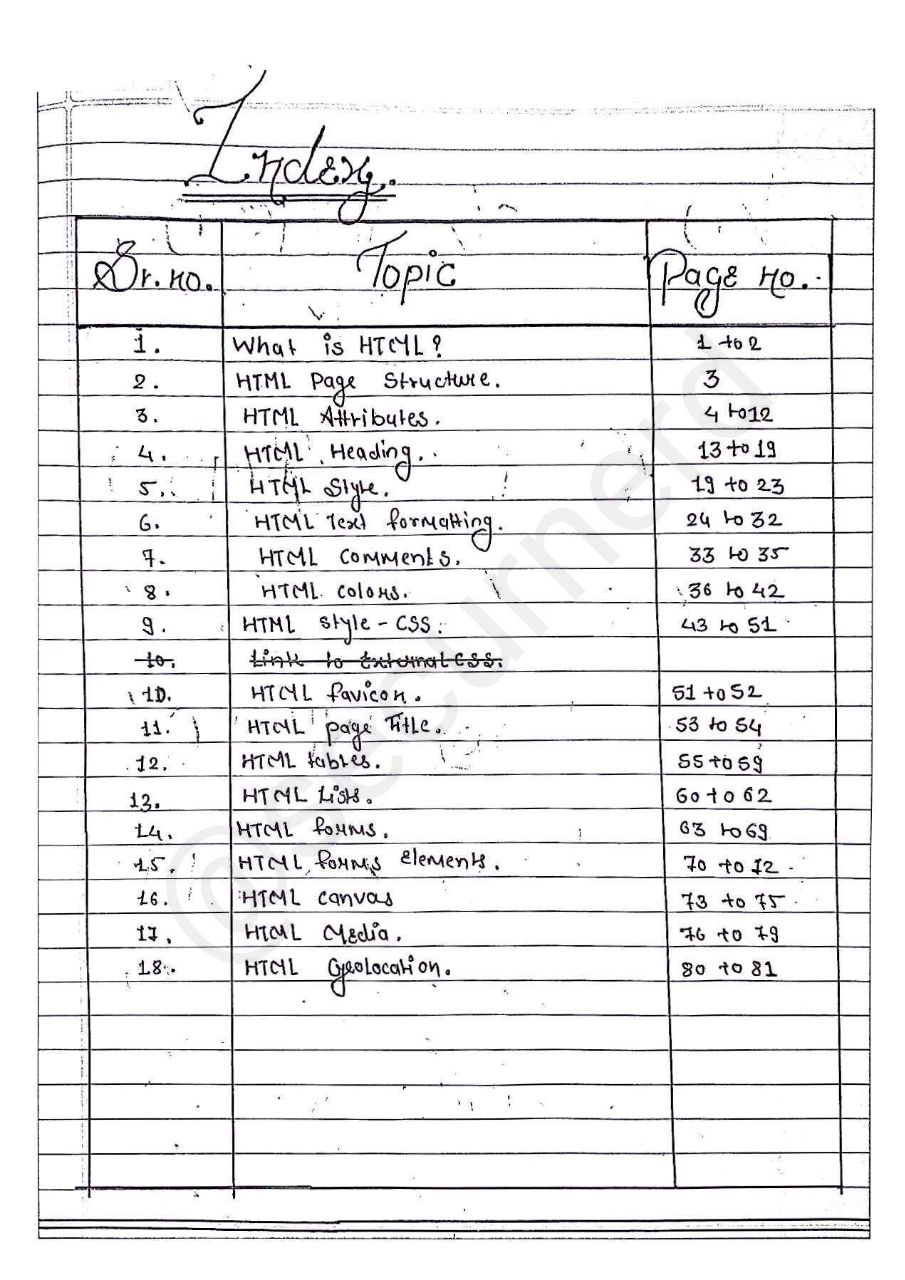 Index.
Sr. no. Topic Page no.
1. What is HTML? 1 to 2
2. HTML Page Structure. 3
3. HTML Attributes. 4 to 12
4. HTML Heading. 13 to 19
5. HTML Style. 19 to 23
6. HTML Text formatting. 24 to 32
7. HTML comments. 33 to 35
8. HTML colors. 36 to 42
9. HTML style - CSS. 43 to 51
10. Link to External CSS.
10. HTML favicon. 51 to 52
11. HTML page Title. 53 to 54
12. HTML tables. 55 to 59
13. HTML Lists. 60 to 62
14. HTML forms. 63 to 69
15. HTML forms Elements. 70 to 72
16. HTML canvas 73 to 75
17. HTML Media. 76 to 79
18. HTML Geolocation. 80 to 81
@securnerd